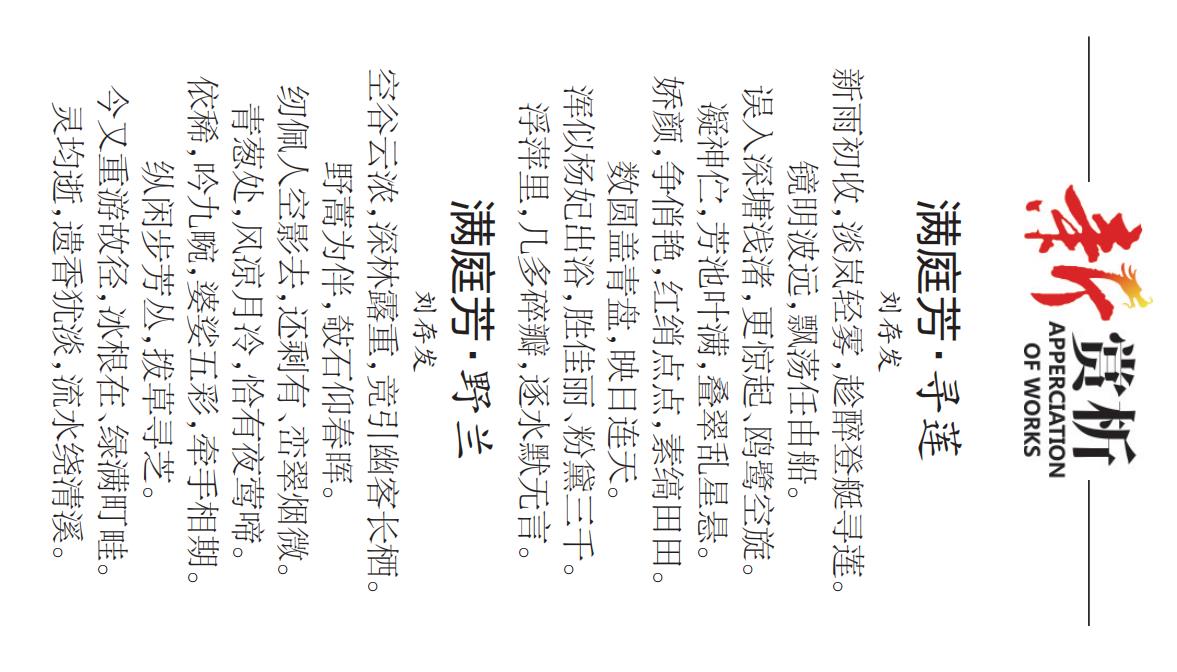 赏析
APPERCIATION
OF WORKS
满庭芳·寻莲
刘存发
新雨初收，淡岚轻雾，趁醉登艇寻莲。
镜明波远，飘荡任由船。
误入深塘浅渚，更惊起、鸥鹭空旋。
凝神伫，芳池叶满，叠翠乱星悬。
娇颜，争俏艳，红绡点点，素缟田田。
数圆盖青盘，映日连天。
浑似杨妃出浴，胜佳丽、粉黛三千。
浮萍里，几多碎瓣，逐水默无言。
满庭芳·野兰
刘存发
空谷云浓，深林露重，竞引幽客长栖。
野蒿为伴，攲石仰春晖。
纫佩人空影去，还剩有、峦翠烟微。
青葱处，风凉月冷，恰有夜莺啼。
依稀，吟九畹，婆娑五彩，牵手相期。
纵闲步芳丛，拨草寻芝。
今又重游故径，冰根在、绿满町畦。
灵均逝，遗香犹淡，流水绕清溪。